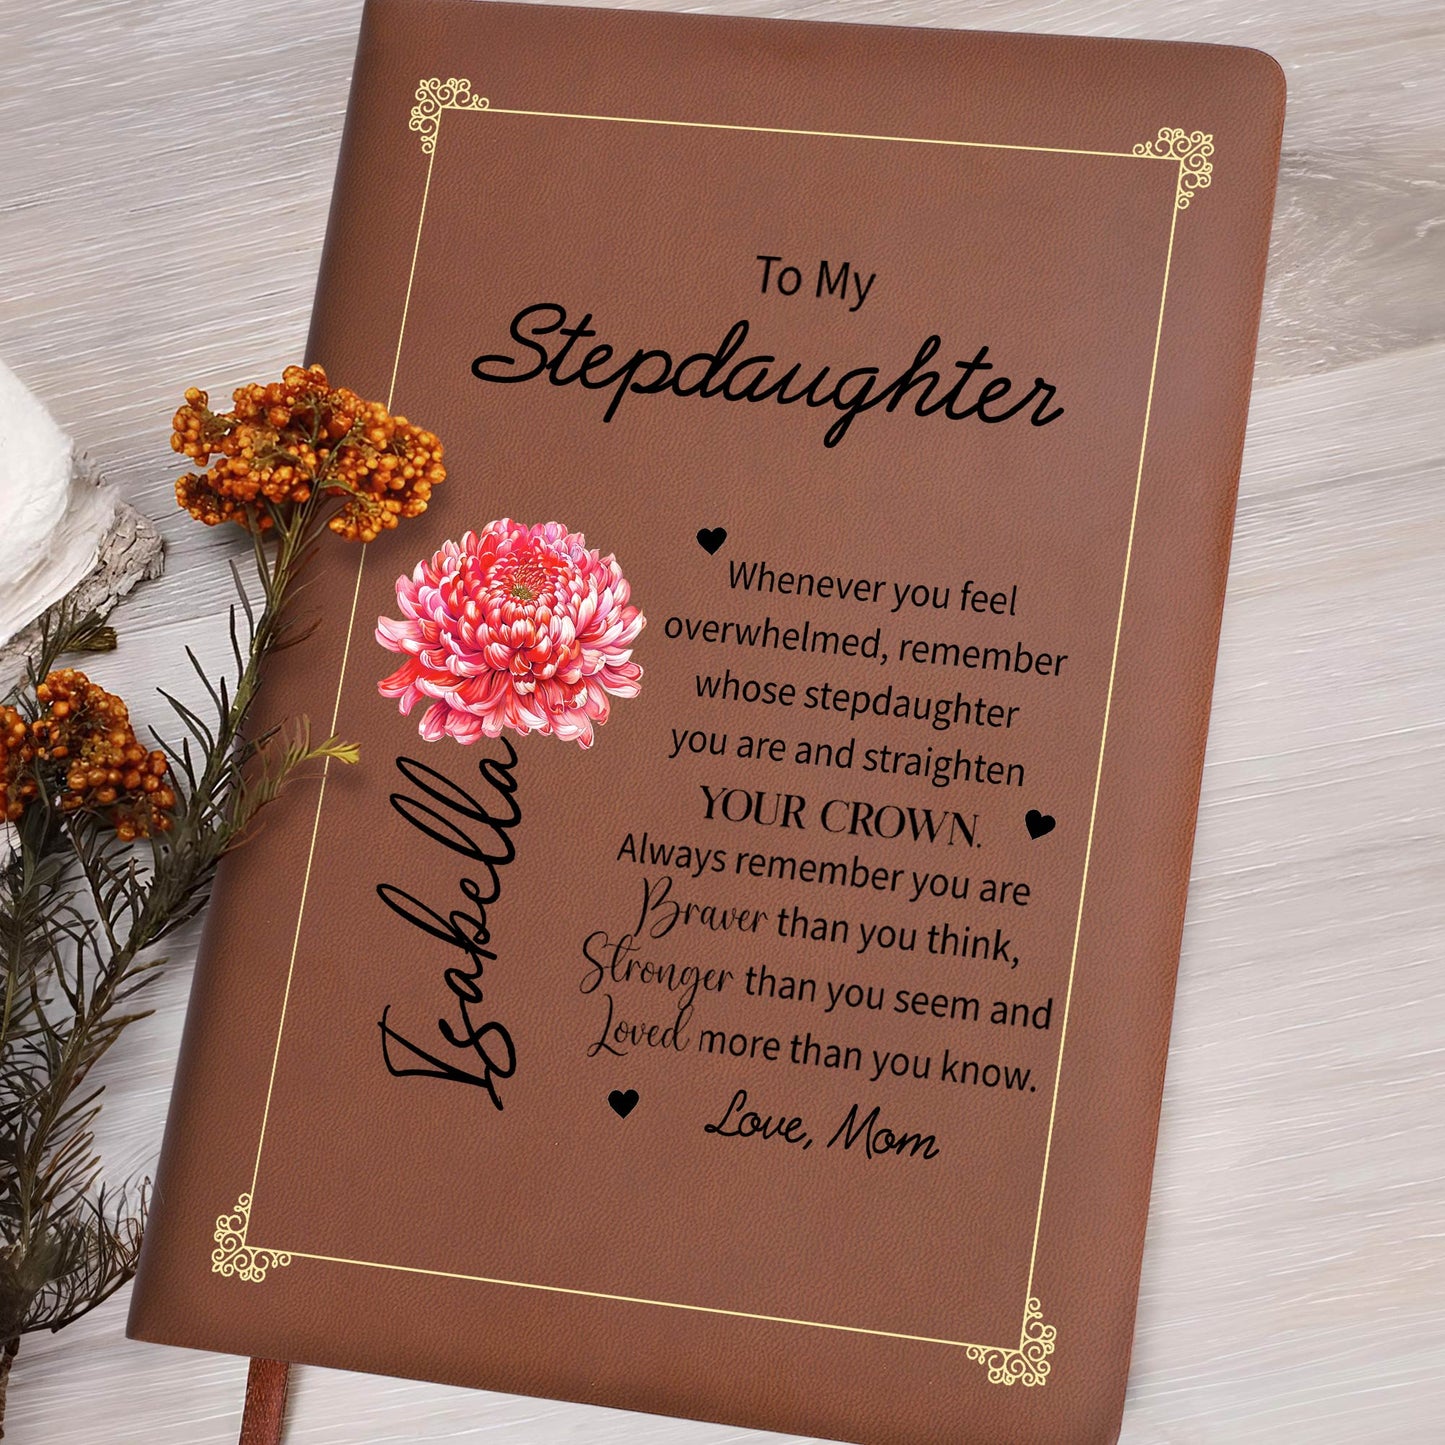 To My
Stepdaughter
Whenever you feel
overwhelmed, remember
whose stepdaughter
you are and straighten
YOUR CROWN.
Always remember you are
Braver than you think,
Stronger than you seem and
Loved more than you know.
Love, Mom
Isabella